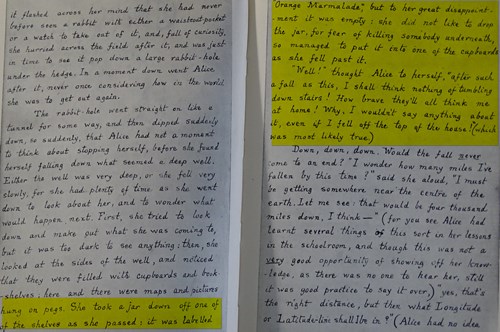 it flashed across her mind that she had never
before seen a rabbit with either a waistcoat-pocket
or a watch to take out of it, and, full of curiosity,
she hurried across the field after it, and was just
in time to see it pop down a large rabbit-hole
under the hedge. In a moment down went Alice
after it, never once considering how in the world
she was to get out again.
The rabbit-hole went straight on like a
tunnel for some way, and then dipped suddenly
down, so suddenly, that Alice had not a moment
to think about stopping herself, before she found
herself falling down what seemed a deep well.
Either the well was very deep, or she fell very
slowly, for she had plenty of time as she went
down to look about her, and to wonder what
would happen next. First, she tried to look
down and make out what she was coming to,
but it was too dark to see anything: then, she
looked at the sides of the well, and noticed
that they were filled with cupboards and book
-shelves; here and there were maps and pictures
hung on pegs. She took a jar down off one of
the shelves as she passed: it was labelled
Orange Marmalade," but to her great disappoint-
ment it was empty: she did not like to drop
the jar, for fear of killing somebody underneath,
so managed to put it into one of the cupboards
as she fell past it.
"Well!" thought Alice to herself, "after such
a fall as this, I shall think nothing of tumbling
down stairs! How brave they'll all think me
at home! Why, I wouldn't say anything about
it, even if I fell off the top of the house! (which
was most likely true.)
Down, down, down. Would the fall never
come to an end? "I wonder how many miles I've
fallen by this time?" said she aloud, "I must
be getting somewhere near the centre of the
earth. Let me see: that would be four thousand
miles down, I think—" (for you see Alice had
learnt several things of this sort in her lessons
in the schoolroom, and though this was not a
very good opportunity of showing off her know-
-ledge, as there was no one to hear her, still
it was good practice to say it over,) "yes, that's
the right distance, but then what Longitude
or Latitude-line shall I be in?" (Alice had no idea